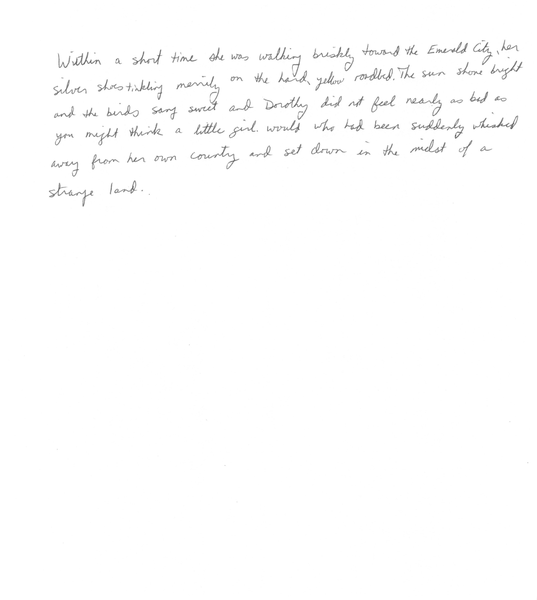 Within a short time she was walking briskly toward the Emerald City, her
silver shoes tinkling merrily on the hard, yellow roadbed. The sun shone bright
and the birds sang sweet and Dorothy did not feel nearly as bad as
you might think a little girl would who had been suddenly whisked
away from her own county and set down in the midst of a
strange land.